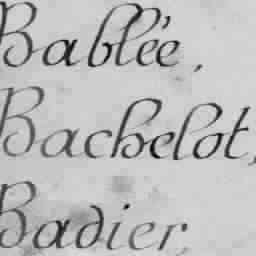 Bablée,
Bachelot,
Badier,